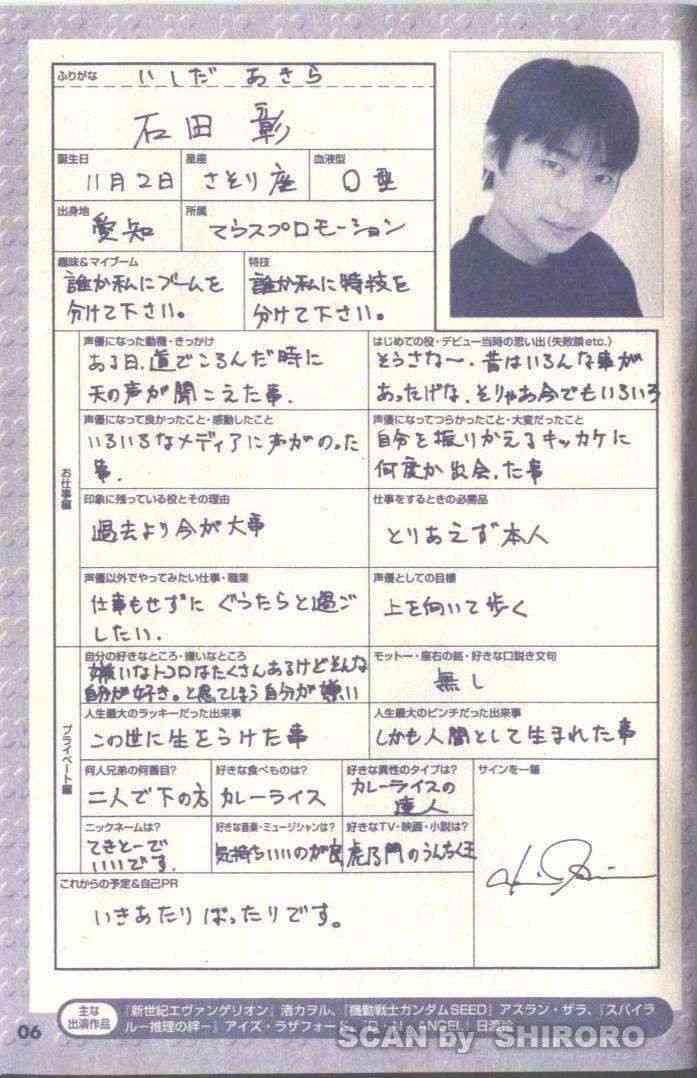 ふりがな いしだ あきら
石田 彰
誕生日 星座 血液型
11月2日 さそり座 O型
出身地 所属
愛知 てらスプロモーション
趣味&マイブーム 特技
誰か私にブームを 誰か私に特技を
分けて下さい。 分けて下さい。
お仕事編
声優になった動機・きっかけ
ある日、道でころんだ時に
天の声が聞こえた事.
はじめての役・デビュー当時の思い出(失敗談etc.)
そうさな〜・昔はいろんな事が
あったげな、そりゃあ今でもいろいろ
声優になって良かったこと・感動したこと
いろいろなメディアに声がのった
事.
声優になってつらかったこと・大変だったこと
自分を振りかえるキッカケに
何度か出会った事
印象に残っている役とその理由
過去より今が大事
仕事をするときの必需品
とりあえず本人
声優以外でやってみたい仕事・職業
仕事もせずに ぐうたらと過ご
したい.
声優としての目標
上を向いて歩く
プライベート編
自分の好きなところ・嫌いなところ
嫌いなトコロはたくさんあるけどそんな
自分が好き。と思てしまう自分が嫌い
モットー・座右の銘・好きな口説き文句
無し
人生最大のラッキーだった出来事
この世に生をうけた事
人生最大のピンチだった出来事
しかも人間として生まれた事
何人兄弟の何番目? 好きな食べものは? 好きな異性のタイプは? サインを一筆
二人で下の方 カレーライス カレーライスの
達人
ニックネームは? 好きな音楽・ミュージシャンは? 好きなTV・映画・小説は?
てきとーで
いいです. 気持ちいいのが良 虎乃門のうんちく王
これからの予定&自己PR
いきあたりばったりです。
主な
出演作品
『新世紀エヴァンゲリオン』渚カヲル、『機動戦士ガンダムSEED』アスラン・ザラ、『スパイラ
ル−推理の絆−』アイズ・ラザフォード、『D・N・ANGEL』日渡怜
06
SCAN by SHIRORO